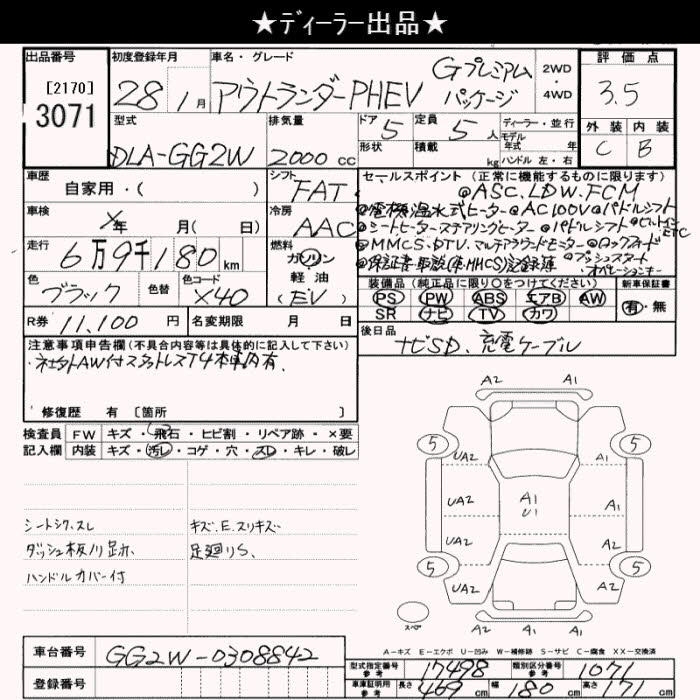 ★ディーラー出品★
出品番号
[2170]
3071
初度登録年月
28年 1月
車名・グレード
アウトランダーPHEV
Gプレミアム
パッケージ
2WD
・
4WD
評価点
3.5
外装 内装
C B
型式
DLA-GG2W
排気量
2000 cc
ドア 5
形状
定員 5人
積載 kg
ディーラー・並行
モデル
年式 年
ハンドル 左・右
車歴
自家用・( )
シフト
FAT
車検
年 月( 日)
冷房
AAC
走行
6万9千180 km
燃料
ガソリン
軽油
(EV)
色
ブラック
色替
色コード
X40
R券 11,100 円
名変期限 月 日
セールスポイント(正常に機能するものに限ります)
@ASC.LDW.FCM
@電機温水式ヒーター@AC100V@パドルシフト
@シートヒーターステアリングヒーター @パドルシフト@ビルトインETC
@MMCS.DTV.マルチアラウンドモニター@ロックフォード
@保証書・車説(車.MMCS)記録簿 @プッシュスタートオペレーションキー
装備品(純正品に限り○をつけてください)
PS PW ABS エアB AW
SR ナビ TV カワ
新車保証書
有・無
後日品
ナビSD、充電ケーブル
注意事項申告欄(不具合内容等は具体的に記入して下さい)
社外AW付スタットレスT4本車内有、
修復歴 有〔箇所 〕
検査員
記入欄
FW キズ・飛石・ヒビ割・リペア跡・×要
内装 キズ・汚レ・コゲ・穴・スレ・キレ・破レ
シートシワ、スレ
ダッシュ板ノリ跡、
ハンドルカバー付
キズ、E、スリキズ
足廻りS、
A2 A1
5 5
UA2 A1
UA2 A1 U1 A1
UA2 A2
5 5
UA2 A2
スペア
A2 A1
A-キズ E-エクボ U-凹み W-補修跡 S-サビ C-腐食 XX-交換済
車台番号 GG2W-0308842
登録番号
型式指定番号
参考
17498
類別区分番号
参考
1071
車庫証明用
参考
長さ 469 cm
幅 180 cm
高さ 171 cm